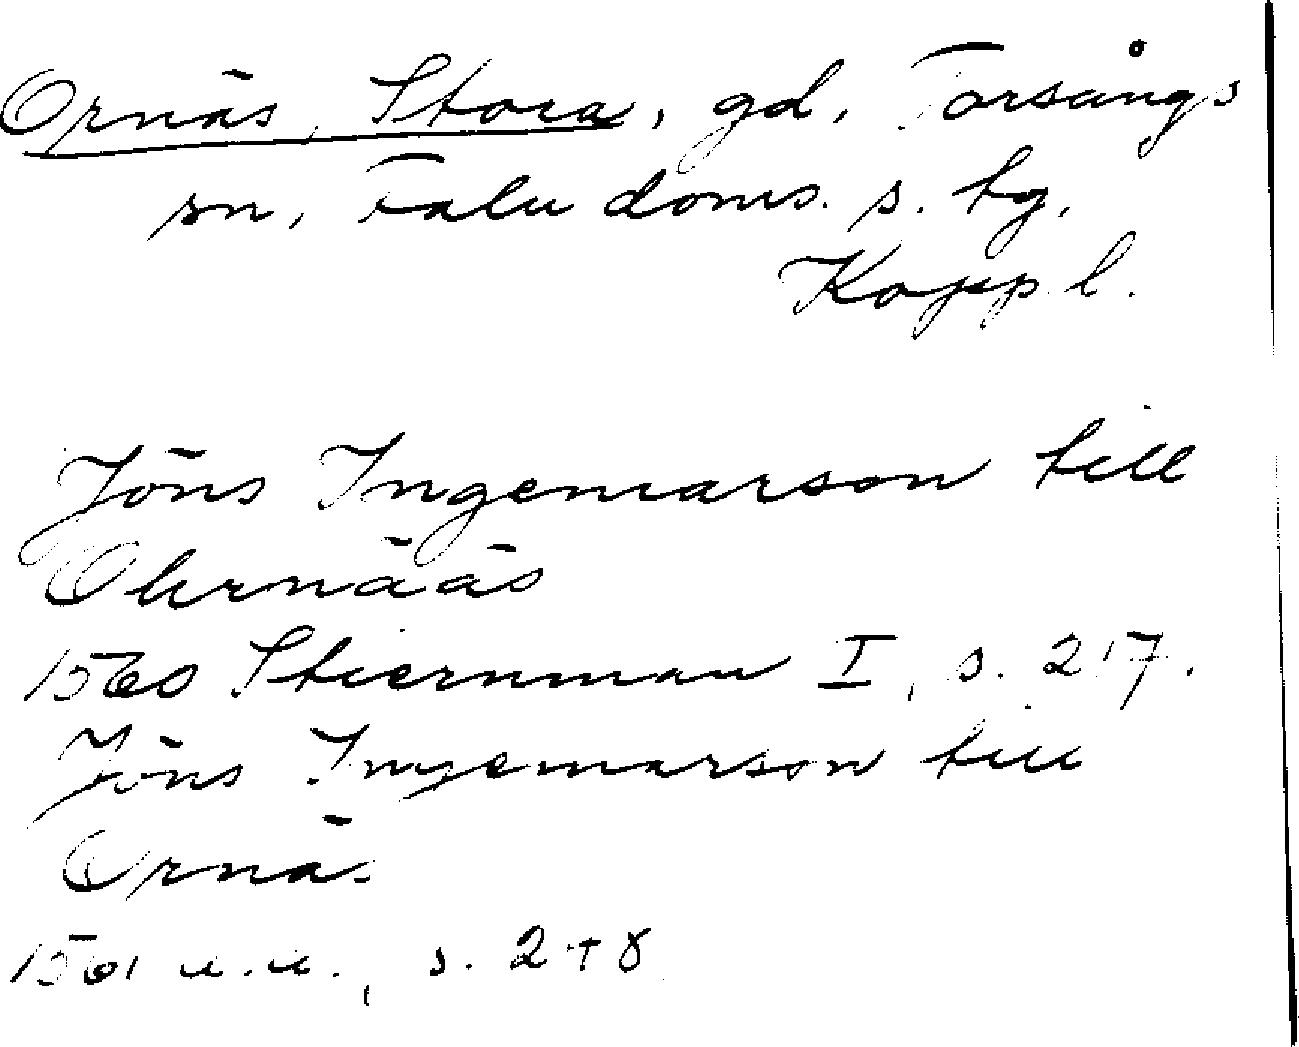 Ornäs, Stora, gd, Torsångs
sn, Falu doms. s. tg,
Kopp l.
Jöns Ingemarson till
Ohrnääs
1560 Stiernman I, s. 217.
Jöns Ingemarson till
Ornäs
1561 a.a., s. 248